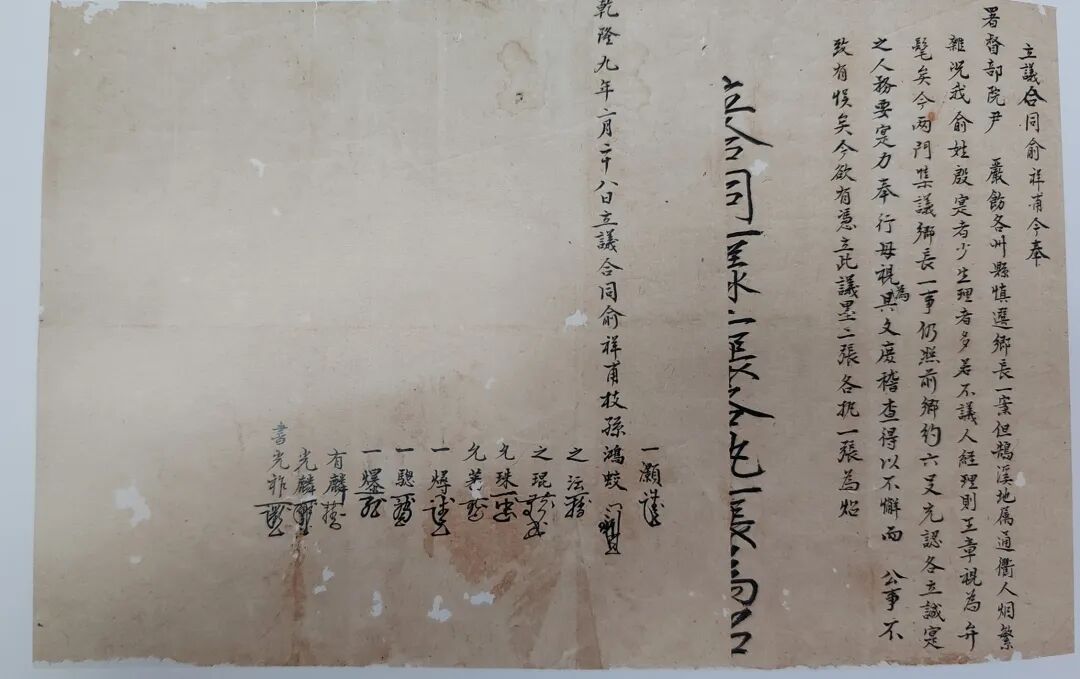 立議合同俞祥甫今奉
署督部院尹 嚴飭各州縣慎選鄉長一案但鵠溪地属通衢人烟繁
雜况我俞姓殷寔者少生理者多若不議人經理則王章視為弁
髦矣今两門集議鄉長一事仍照前鄉約六支充認各立誠寔
之人務要寔力奉行毋視為具文庶稽查得以不懈而 公事不
致有悞矣今欲有憑立此議墨二張各執一張為炤
乾隆九年六月二十八日立議合同俞祥甫枝孫鴻蛟
一灝
之法
之琨
允珠
允
一焯
一驄
一爆
有麟
光麟
書光祚